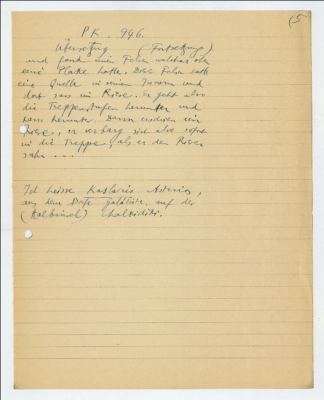 (5
PK. 946.
Übersetzung (Fortsetzung)
und fand einen Felsen welcher oben
eine Platte hatte. Diese Felsen hatte
eine Quelle in seinem Innern und
dort sass ein Riese. Er geht also
die Treppenstufen herunter und
kam herunter. Dann erschien ein
Riese, er verbarg sich also sofort
in die Treppe, als er den Riesen
sahe ...
Ich heisse Kaslaris Asterios,
aus dem Dorfe Galatista, auf der
(Halbinsel) Chalkidiki.